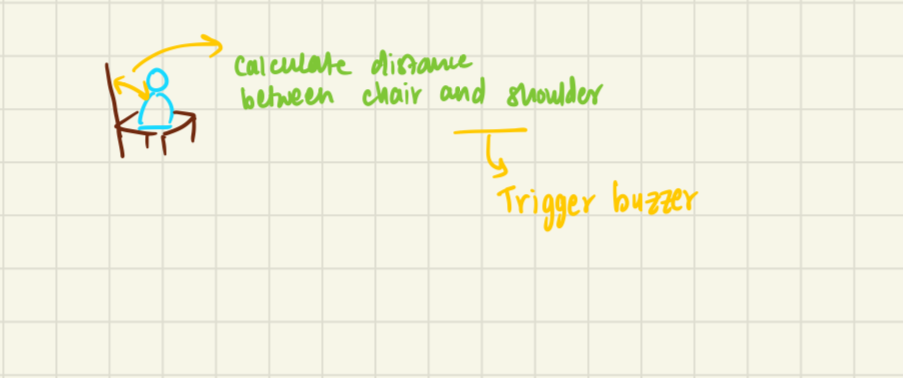 Calculate distance
between chair and shoulder
Trigger buzzer